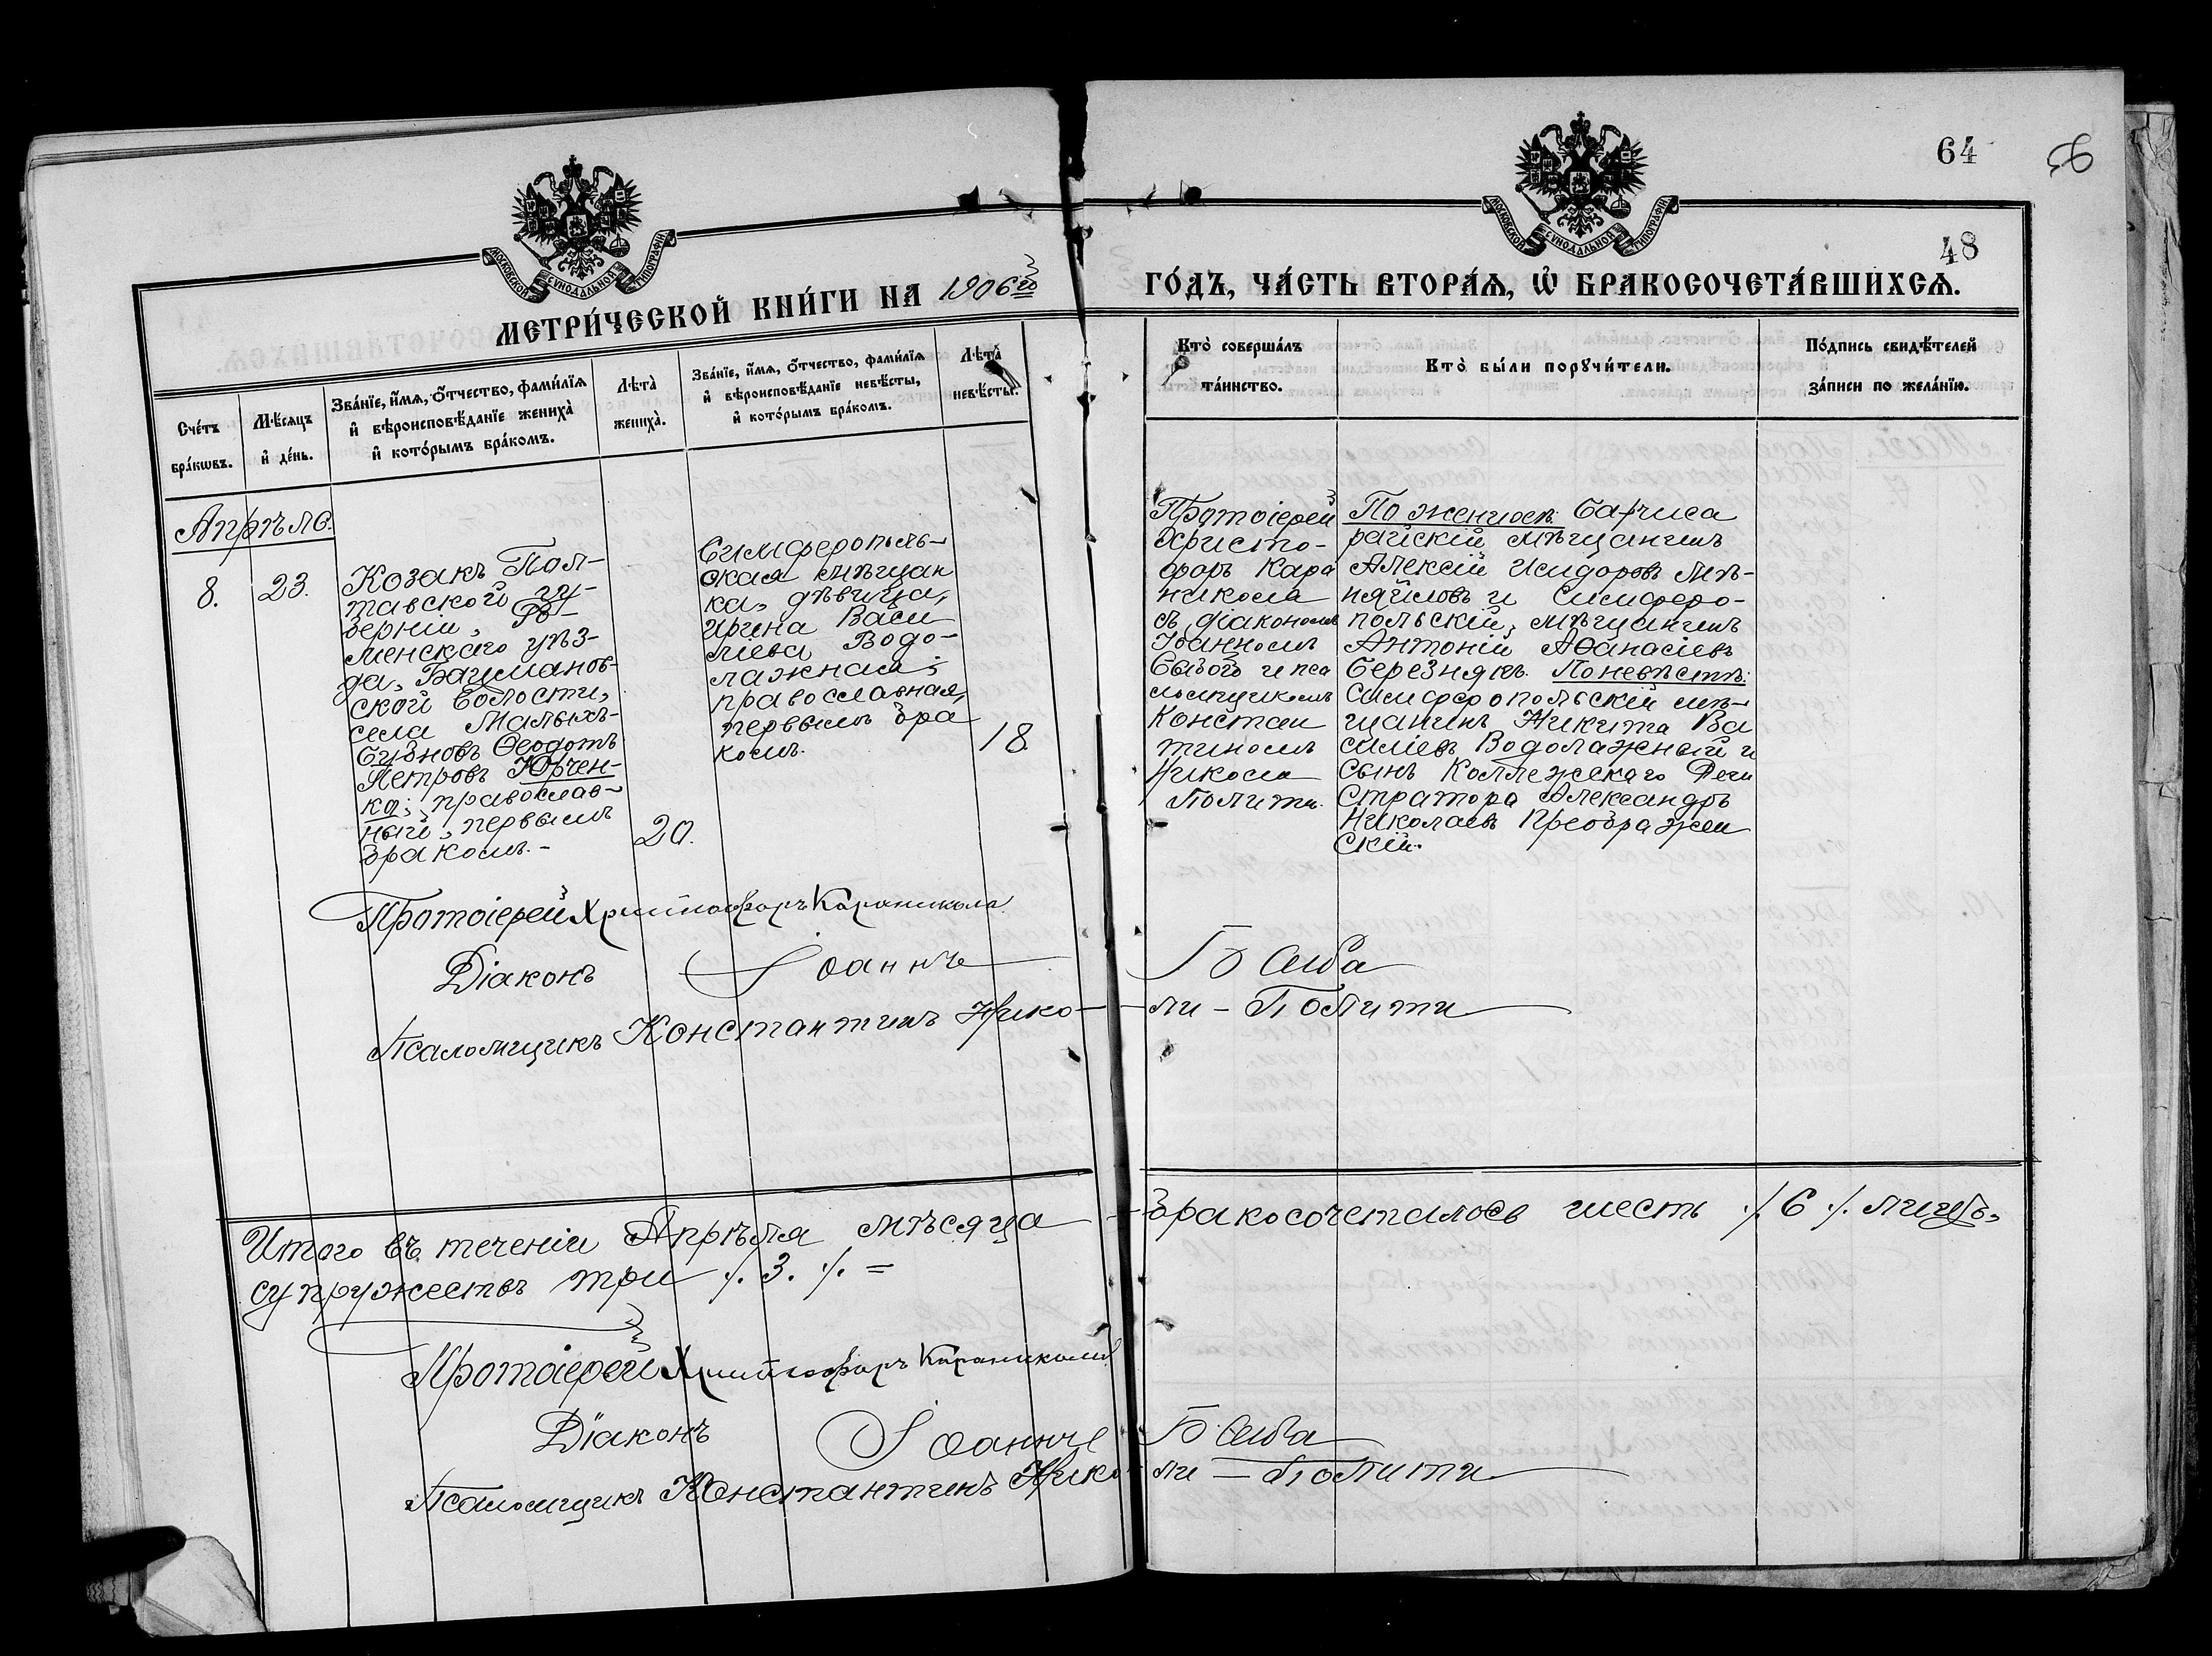 64
48
МОСКОВСКОЙ СУНОДАЛЬНОЙ ТИПОГРАФІИ
МОСКОВСКОЙ СУНОДАЛЬНОЙ ТИПОГРАФІИ
МЕТРИ́ЧЕСКОЙ КНИ́ГИ НА 1906го
ГО́ДЪ, ЧА́СТЬ ВТОРА́Ѧ, Ѡ҆ БРАКОСОЧЕТА́ВШИХСѦ.
Сче́тъ
бра́кѡвъ.
Мѣ́сѧцъ
и҆ де́нь.
Зва́нїе, и҆́мѧ, ѻ҆́тчество, фами́лїѧ
и҆ вѣроисповѣ́данїе жениха̀
и҆ кото́рымъ бра́комъ.
Лѣ́та
жениха̀.
Зва́нїе, и҆́мѧ, ѻ҆́тчество, фами́лїѧ
и҆ вѣроисповѣ́данїе невѣ́сты,
и҆ кото́рымъ бра́комъ.
Лѣ́та
невѣ́сты.
Кто̀ соверша́лъ
та́инство.
Кто̀ бы́ли порꙋчи́тели.
По́дпись свидѣ́телей
за́писи по жела́нїю.
Апрѣль.
8.
23.
Козакъ Пол-
тавской гу-
берніи, Ро-
менскаго уѣз-
да, Бацманов-
ской волости,
села Малыхъ-
Бубновъ Ѳеодотъ
Петровъ Юрчен-
ко; православ-
ный, первымъ
бракомъ.-
20.
Симферополь-
ская мѣщан
ка, дѣвица,
Ирина Васи
лiева Водо-
лажная;
православная,
первымъ бра
комъ.
18.
Протоіерей
Христо-
форъ Кара
никола
съ діакономъ
Іоанномъ
Бабой и пса
ломщикомъ
Констан
тиномъ
Никола
Полити.
По женихѣ: Бахчиса
райскій мѣщанинъ
Алексій Исидоровъ Мѣ-
няйловъ и Симферо-
польскій, мѣщанинъ
Антоній Аѳанасіевъ
Березнякъ. По невѣстѣ:
Симферопольскій мѣ-
щанинъ Никита Ва
силіевъ Водолажный и
сынъ Коллежскаго Реги
стратора Александръ
Николаевъ Преображен
скій.
Протоіерей Христофоръ Караникола
Діаконъ Іоаннъ Баба
Псаломщикъ Константинъ Нико-ли-Полити
Итого въ теченіи Апрѣля мѣсяца бракосочеталось шесть /. 6 /. лицъ,
супружествъ три /. 3. /. =
Протоіерей Христофоръ Караникола
Діаконъ Іоаннъ Баба
Псаломщикъ Константинъ Нико-ли-Полити